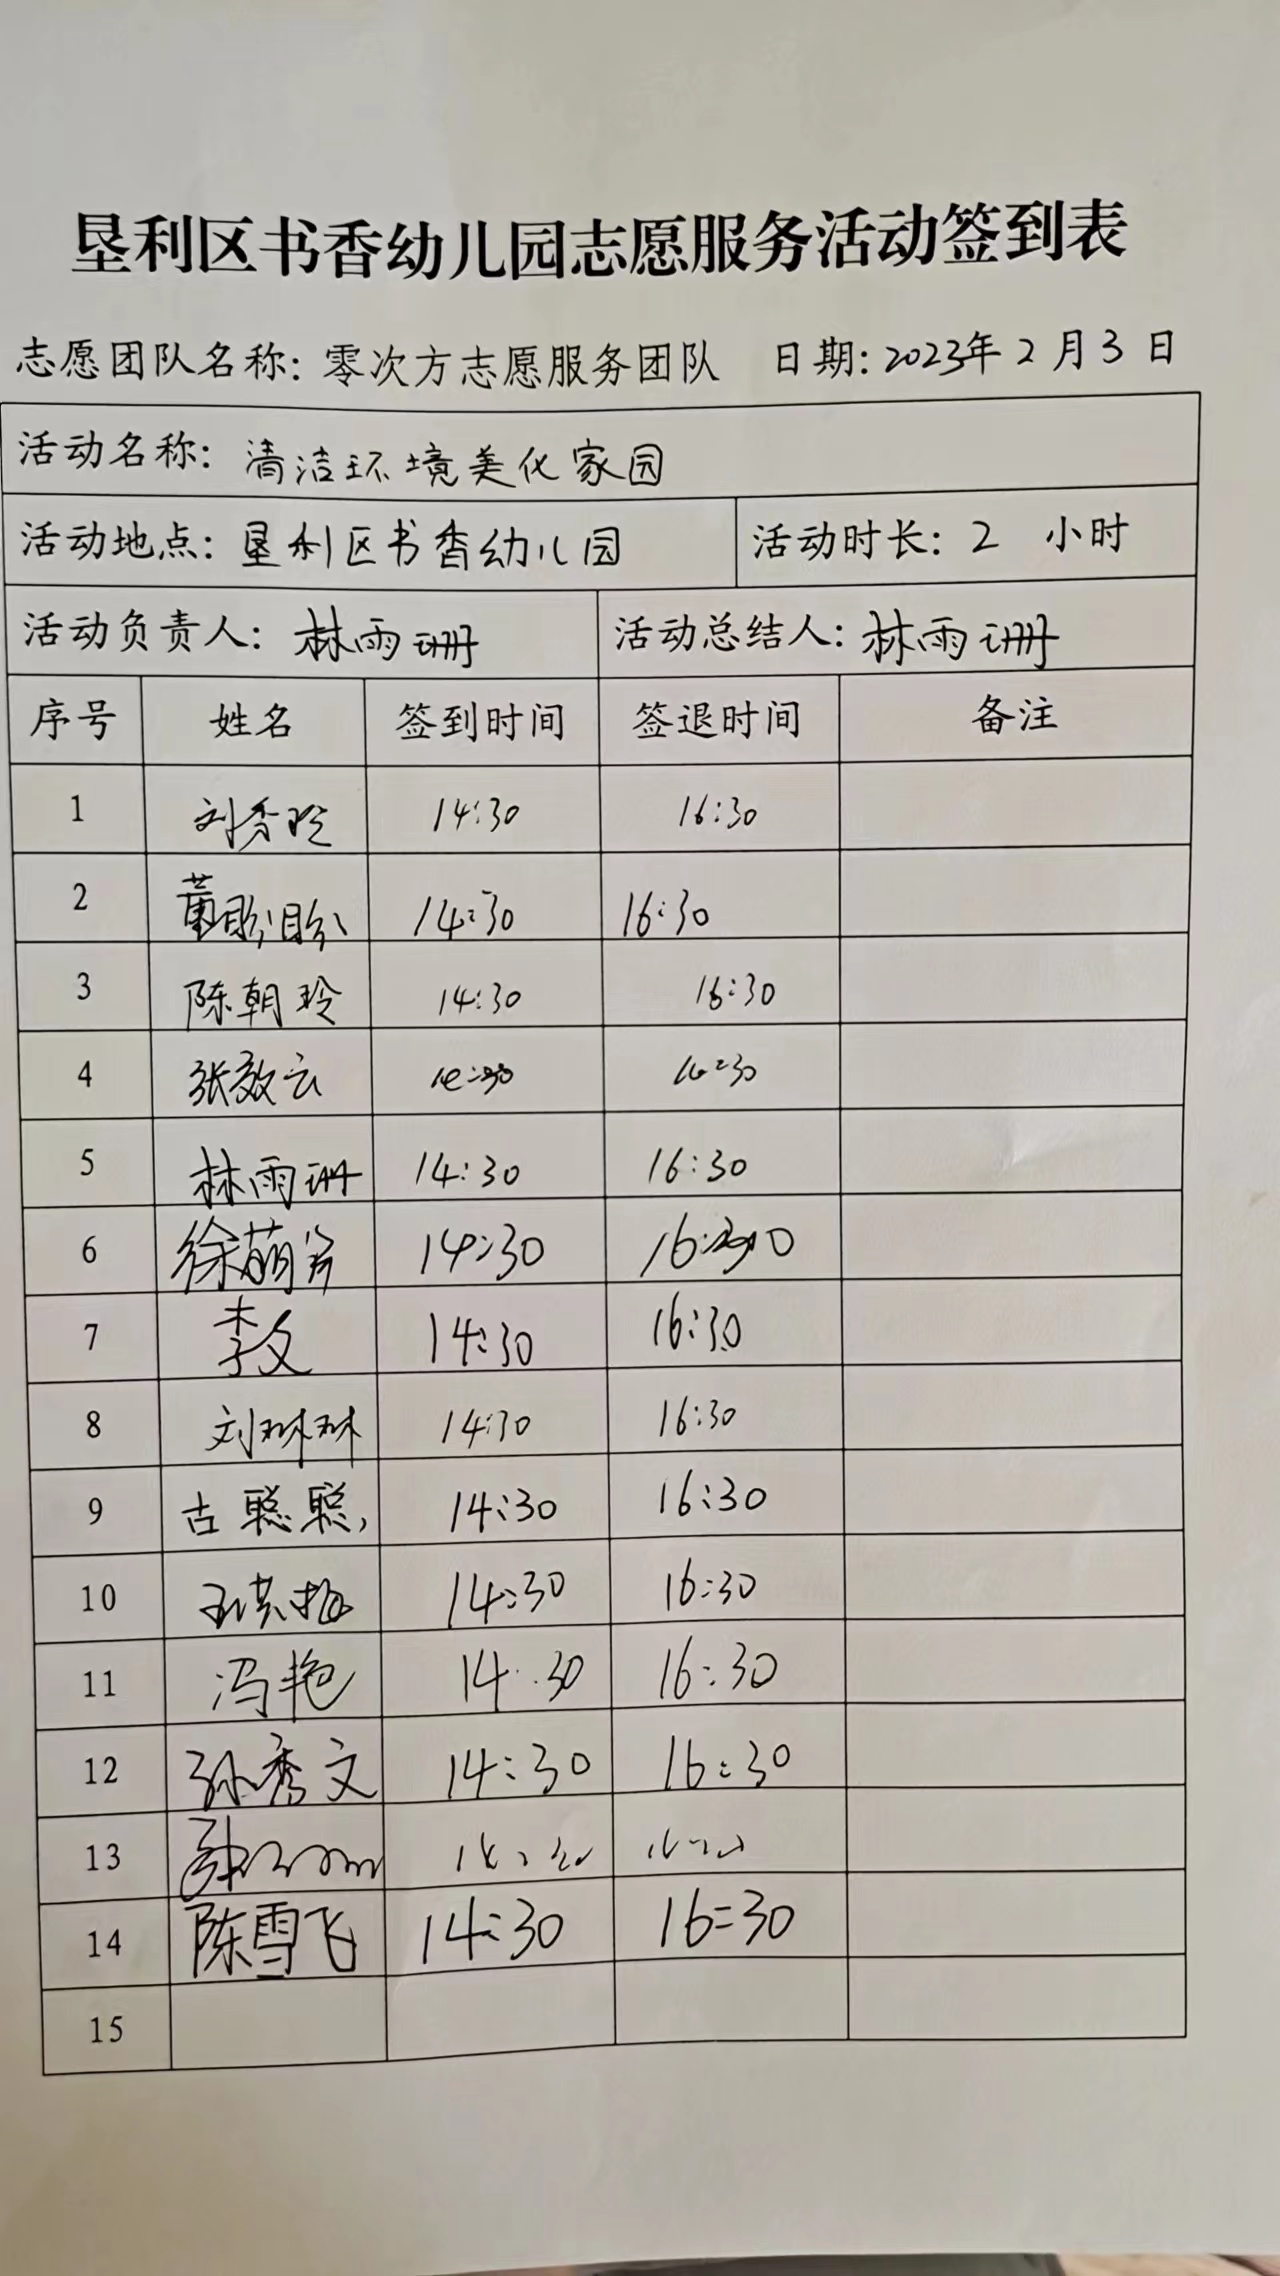 垦利区书香幼儿园志愿服务活动签到表
志愿团队名称：零次方志愿服务团队 日期：2023年2月3日
活动名称：清洁环境美化家园
活动地点：垦利区书香幼儿园 活动时长：2 小时
活动负责人：林雨珊 活动总结人：林雨珊
序号 姓名 签到时间 签退时间 备注
1 刘秀玲 14:30 16:30
2 董盼盼 14:30 16:30
3 陈朝玲 14:30 16:30
4 张效云 14:30 16:30
5 林雨珊 14:30 16:30
6 徐萌 14:30 16:30
7 李文 14:30 16:30
8 刘琳琳 14:30 16:30
9 古聪聪 14:30 16:30
10 14:30 16:30
11 冯艳 14:30 16:30
12 孙秀文 14:30 16:30
13
14 陈雪飞 14:30 16:30
15